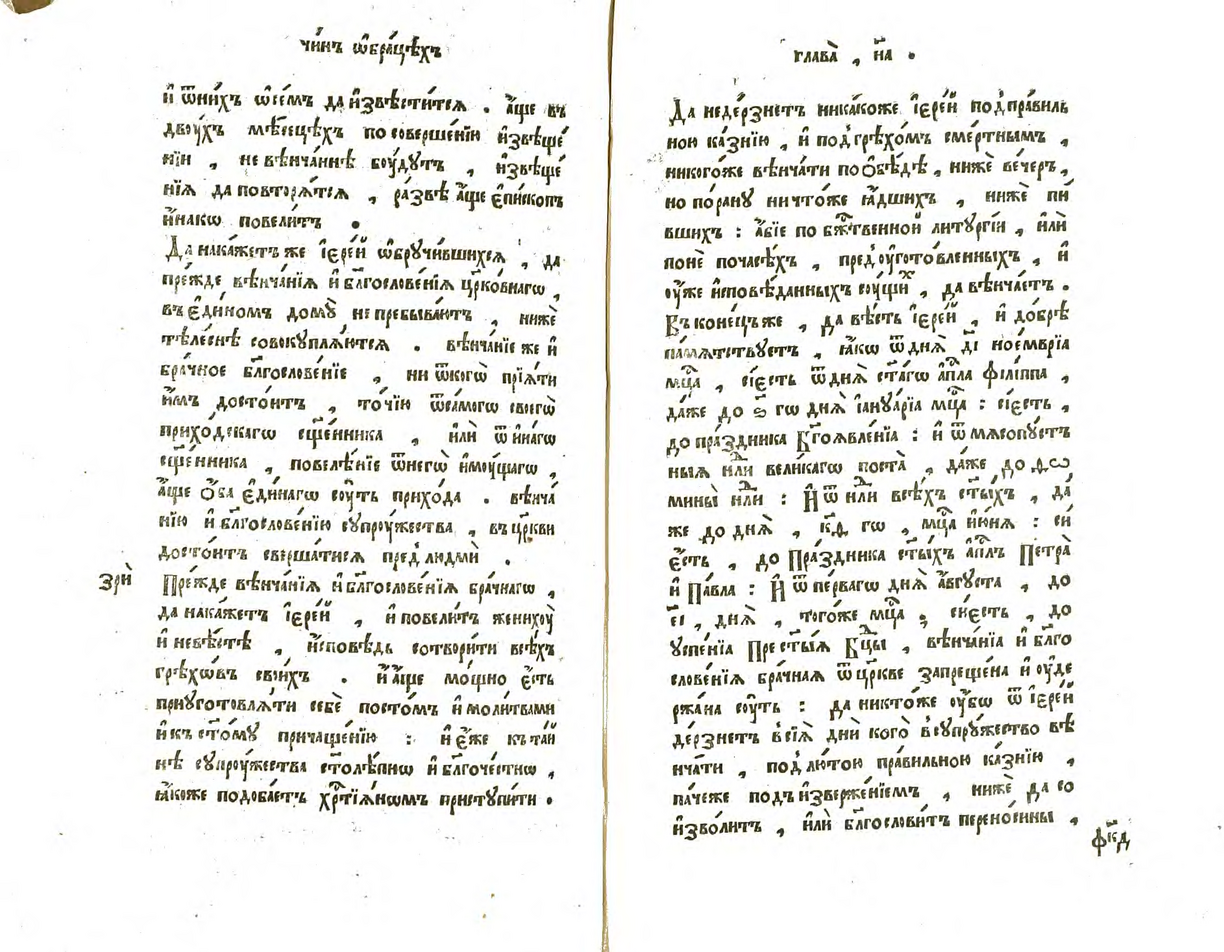 чи́нъ ѡ҆бра́цѣхъ
и҆ ѿни́хъ ѡ҆се́мъ да и҆звѣсти́тсѧ . а҆́ще въ
двои́хъ мѣ́сецѣхъ по соверше́нїю и҆звѣще́
нїи , не вѣнча́ннѣ бꙋ́дꙋтъ , и҆звѣще́
нїѧ да повторѧ́тсѧ , ра́звѣ а҆́ще є҆пи́скопъ
и҆на́кѡ повели́тъ .
Да нака́жетъ же і҆ере́й ѡ҆брꙋчи́вшихсѧ , да
пре́жде вѣнча́нїѧ и҆ блгⷭ҇ове́нїѧ цр҃ко́внагѡ ,
въ є҆ди́номъ домꙋ̀ не пребыва́ютъ , нижѐ
тѣле́снѣ совокꙋплѧ́ютсѧ . вѣнча́нїе же и҆
бра́чное блг҃ослове́нїе , ни ѿкогѡ̀ прїѧ́ти
и҆̀мъ досто́итъ , то́чїю ѿсамогѡ̀ своегѡ̀
прихо́дскагѡ сщ҃е́нника , и҆лѝ ѿ и҆на́гѡ
сщ҃е́нника , повелѣ́нїе ѿнегѡ̀ и҆мꙋ́щагѡ ,
а҆́ще ѻ҆́ба є҆ди́нагѡ сꙋ́ть прихо́да . вѣнча́
нїю и҆ блг҃ослове́нїю сꙋпрꙋ́жества , въ цр҃кви
досто́итъ сверша́тисѧ пред̾ людмѝ .
зрѝ
Пре́жде вѣнча́нїѧ и҆ блг҃ослове́нїѧ бра́чнагѡ ,
да нака́жетъ і҆ере́й , и҆ повели́тъ женихꙋ̀
и҆ невѣ́стѣ , и҆́сповѣдь сотвори́ти всѣ́хъ
грѣхѡ́въ свои́хъ . и҆ а҆́ще мо́щно є҆́сть
приꙋготовлѧ́ти себѐ посто́мъ и҆ моли́твами
и҆ къ ст҃о́мꙋ причаще́нїю : и҆ є҆́же къ та́й
нѣ сꙋпрꙋ́жества столѣ́пнѡ и҆ блгⷭ҇оче́стнѡ ,
ꙗ҆́коже подоба́етъ хрⷭ҇тїѧ́нѡмъ пристꙋпи́ти .
глава̀ , н҃а .
Да недерзне́тъ ника́коже і҆ере́й под̾пра́виль
ною ка́знїю , и҆ под̾грѣхо́мъ сме́ртнымъ ,
никого́же вѣнча́ти по ѻ҆бѣ́дѣ , нижѐ ве́черъ ,
но по́ранꙋ ничто́же ꙗ҆́дшихъ , нижѐ пи́
вшихъ : а҆́бїе по бжⷭ҇твенной литꙋргі́и , и҆лѝ
понѐ почасѣ́хъ , пред̾ꙋгото́вленныхъ , и҆
ᲂу҆жѐ и҆сповѣ́данныхъ сꙋ́щихъ , да вѣнча́етъ .
Въ коне́цъ же , да вѣ́сть і҆ере́й , и҆ до́брѣ
па́мѧтствꙋетъ , ꙗ҆́кѡ ѿ днѧ̀ д҃і ное́мврїа
мцⷭ҇а , сїе́сть ѿ днѧ̀ ст҃а́гѡ а҆пⷭ҇ла фїлі́ппа ,
да́же до ѕ҃ гѡ днѧ̀ і҆анꙋа́рїа мцⷭ҇а : сїе́сть ,
до пра́здника Бг҃оѧвле́нїа : и҆ ѿ мѧсопꙋ́ст
ныѧ нⷣли вели́кагѡ поста̀ , да́же до ѳѡ
мины̀ нⷣли : И҆ ѿ нⷣли всѣ́хъ ст҃ы́хъ , да́
же до днѧ̀ , к҃ѳ гѡ , мцⷭ҇а и҆ю́нѧ : сїѐ
є҆́сть , до Пра́здника ст҃ы́хъ а҆пⷭ҇лъ Петра̀
и҆ Па́вла : И҆ ѿ пе́рвагѡ днѧ̀ а҆́вгꙋста , до
є҃і , днѧ̀ , тогѡ́же мцⷭ҇а , сїе́сть , до
ᲂу҆спе́нїа Прест҃ы́ѧ Бцⷣы , вѣнча́нїа и҆ блг҃о
слове́нїѧ бра́чнаѧ ѿ цр҃кве запреще́на и҆ ᲂу҆де
ржа́на сꙋ́ть : да никто́же ᲂу҆́бѡ ѿ і҆ере́й
де́рзнетъ в̾ сїѧ̀ днѝ кого̀ в̾ сꙋпрꙋ́жество вѣ
нча́ти , под̾ лю́тою пра́вильною ка́знїю ,
па́чеже подъ и҆зверже́нїемъ , нижѐ да со
и҆зво́литъ , и҆лѝ блг҃ослови́тъ перено́сины ,
фк҃д